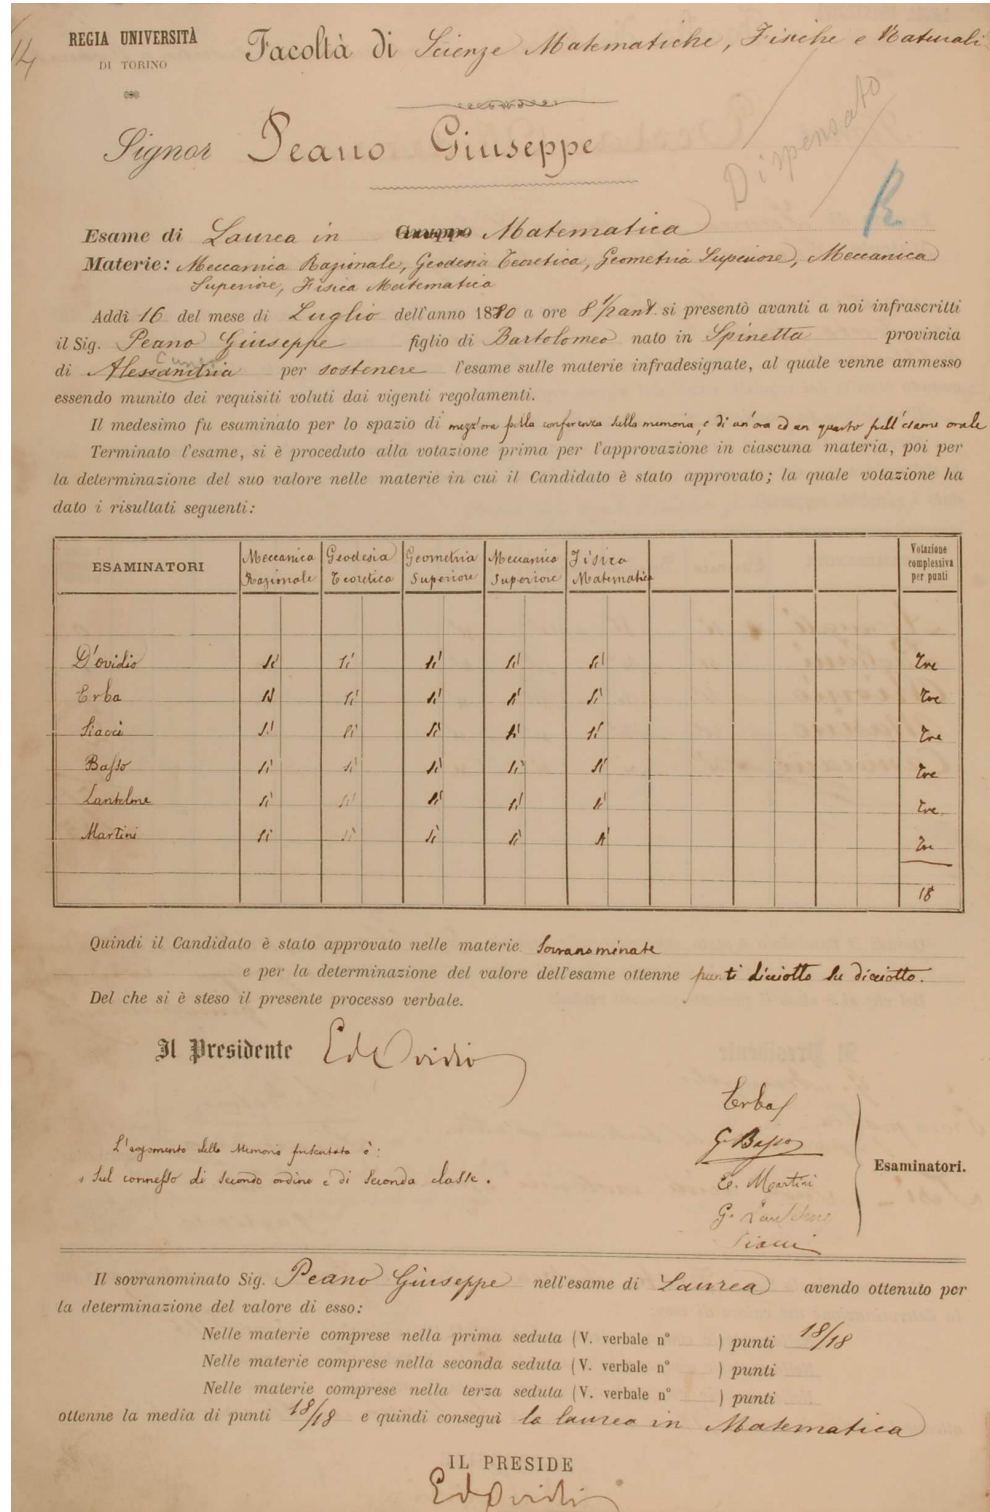 14
REGIA UNIVERSITÀ
DI TORINO
Facoltà di Scienze Matematiche, Fisiche e Naturali
Dispensato
Signor Peano Giuseppe
R
Esame di Laurea in Gruppo Matematica
Materie: Meccanica Razionale, Geodesia Teoretica, Geometria Superiore, Meccanica
Superiore, Fisica Matematica
Addì 16 del mese di Luglio dell'anno 1880 a ore 8 1/2 ant. si presentò avanti a noi infrascritti
il Sig. Peano Giuseppe figlio di Bartolomeo nato in Spinetta provincia
Cuneo
di Alessandria per sostenere l'esame sulle materie infradesignate, al quale venne ammesso
essendo munito dei requisiti voluti dai vigenti regolamenti.
Il medesimo fu esaminato per lo spazio di mezz'ora sulla conferenza della memoria, e di un'ora ed un quarto sull'esame orale
Terminato l'esame, si è proceduto alla votazione prima per l'approvazione in ciascuna materia, poi per
la determinazione del suo valore nelle materie in cui il Candidato è stato approvato; la quale votazione ha
dato i risultati seguenti:
ESAMINATORI Meccanica Razionale Geodesia Teoretica Geometria Superiore Meccanica Superiore Fisica Matematica Votazione complessiva per punti
D'ovidio sì sì sì sì sì tre
Erba sì sì sì sì sì tre
Siacci sì sì sì sì sì tre
Basso sì sì sì sì sì tre
Lantelme sì sì sì sì sì tre
Martini sì sì sì sì sì tre
18
Quindi il Candidato è stato approvato nelle materie sovranominate
e per la determinazione del valore dell'esame ottenne punti diciotto su diciotto.
Del che si è steso il presente processo verbale.
Il Presidente E d'Ovidio
Erba
G Basso
E. Martini
G. Lantelme
Siacci
Esaminatori.
L'argomento della Memoria presentata è:
Sul connesso di secondo ordine e di seconda classe.
Il sovranominato Sig. Peano Giuseppe nell'esame di Laurea avendo ottenuto per
la determinazione del valore di esso:
Nelle materie comprese nella prima seduta (V. verbale n° ) punti 18/18
Nelle materie comprese nella seconda seduta (V. verbale n° ) punti
Nelle materie comprese nella terza seduta (V. verbale n° ) punti
ottenne la media di punti 18/18 e quindi conseguì la laurea in Matematica
IL PRESIDE
E d'Ovidio